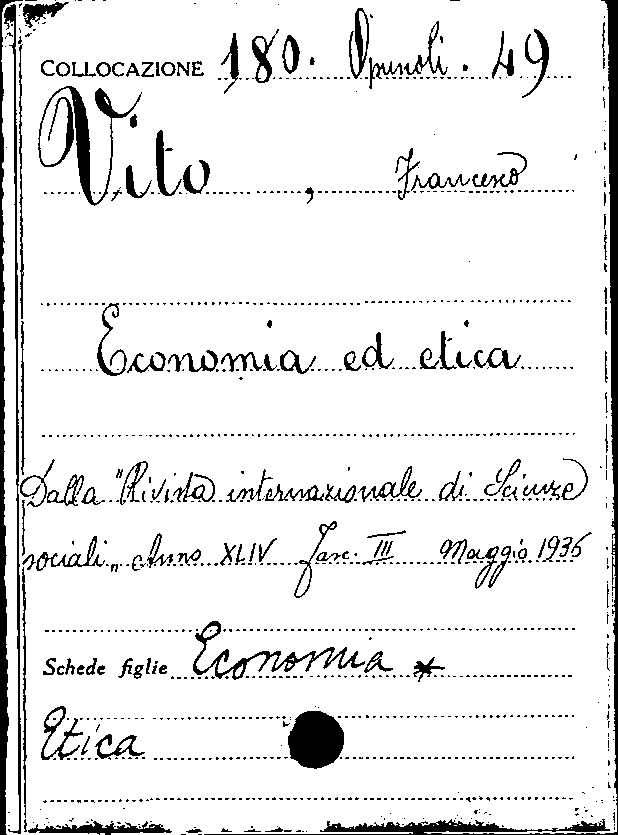 COLLOCAZIONE 180. Opuscoli. 49
Vito, Francesco
Economia ed etica
Dalla "Rivista internazionale di Scienze
sociali„ Anno XLIV Fasc. III Maggio 1936
Schede figlie Economia *
Etica